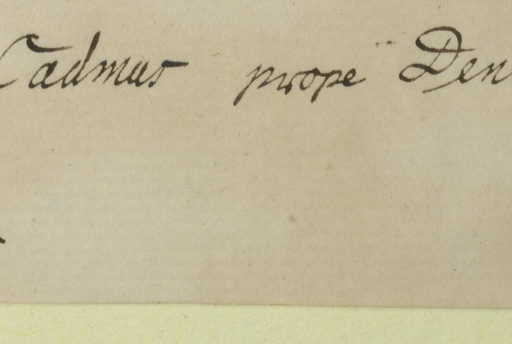 Cadmus prope Den